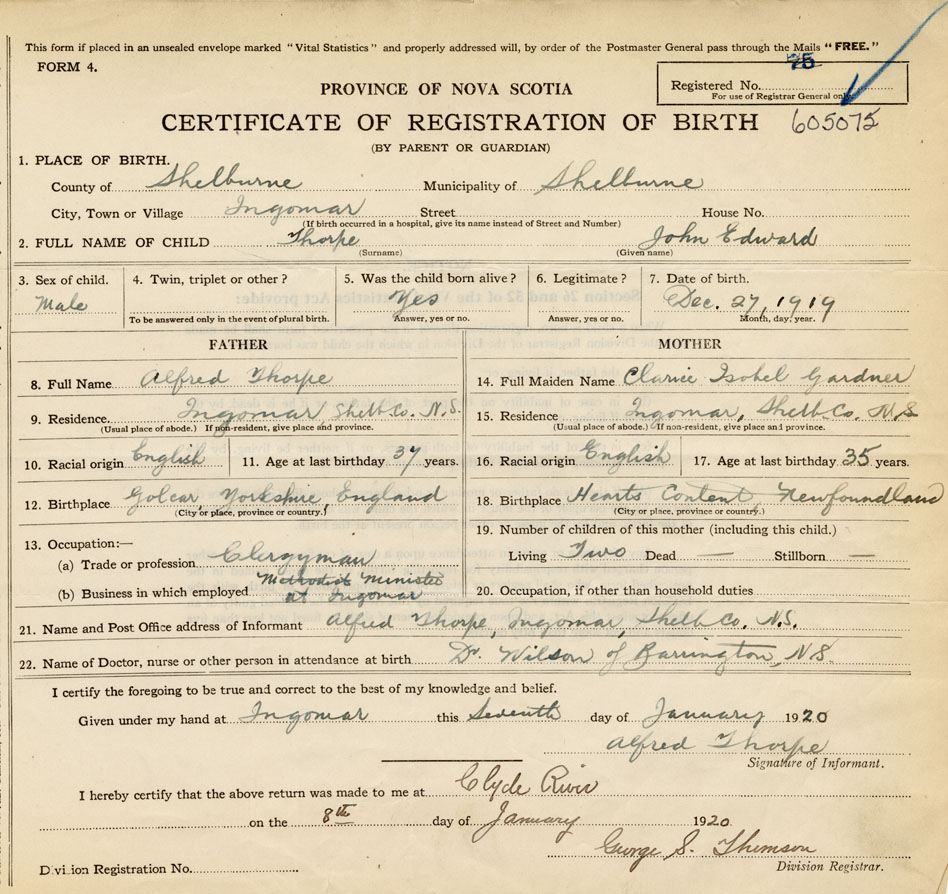 This form if placed in an unsealed envelope marked "Vital Statistics" and properly addressed will, by order of the Postmaster General pass through the Mails "FREE."
FORM 4.
75
Registered No.
For use of Registrar General only.
PROVINCE OF NOVA SCOTIA
CERTIFICATE OF REGISTRATION OF BIRTH 605075
(BY PARENT OR GUARDIAN)
1. PLACE OF BIRTH.
County of Shelburne Municipality of Shelburne
City, Town or Village Ingomar Street House No.
(If birth occurred in a hospital, give its name instead of Street and Number)
2. FULL NAME OF CHILD Thorpe John Edward
(Surname) (Given name)
3. Sex of child. 4. Twin, triplet or other? 5. Was the child born alive? 6. Legitimate? 7. Date of birth.
Male Yes Dec. 27, 1919
To be answered only in the event of plural birth. Answer, yes or no. Answer, yes or no. Month, day, year.
FATHER MOTHER
8. Full Name Alfred Thorpe 14. Full Maiden Name Clarice Isobel Gardner
9. Residence Ingomar Shelb. Co. N.S. 15. Residence Ingomar, Shelb. Co. N.S
(Usual place of abode.) If non-resident, give place and province. (Usual place of abode.) If non-resident, give place and province.
10. Racial origin English 11. Age at last birthday 37 years. 16. Racial origin English 17. Age at last birthday 35 years.
12. Birthplace Golcar, Yorkshire, England 18. Birthplace Hearts Content, Newfoundland
(City or place, province or country.) (City or place, province or country.)
13. Occupation:— 19. Number of children of this mother (including this child.)
(a) Trade or profession Clergyman Living Two Dead — Stillborn —
(b) Business in which employed Methodist Minister at Ingomar 20. Occupation, if other than household duties
21. Name and Post Office address of Informant Alfred Thorpe, Ingomar, Shelb. Co. N.S.
22. Name of Doctor, nurse or other person in attendance at birth Dr. Wilson of Barrington, N.S.
I certify the foregoing to be true and correct to the best of my knowledge and belief.
Given under my hand at Ingomar this Seventh day of January 1920
Alfred Thorpe
Signature of Informant.
I hereby certify that the above return was made to me at Clyde River
on the 8th day of January 1920
George S. Thomson
Division Registrar.
Division Registration No.